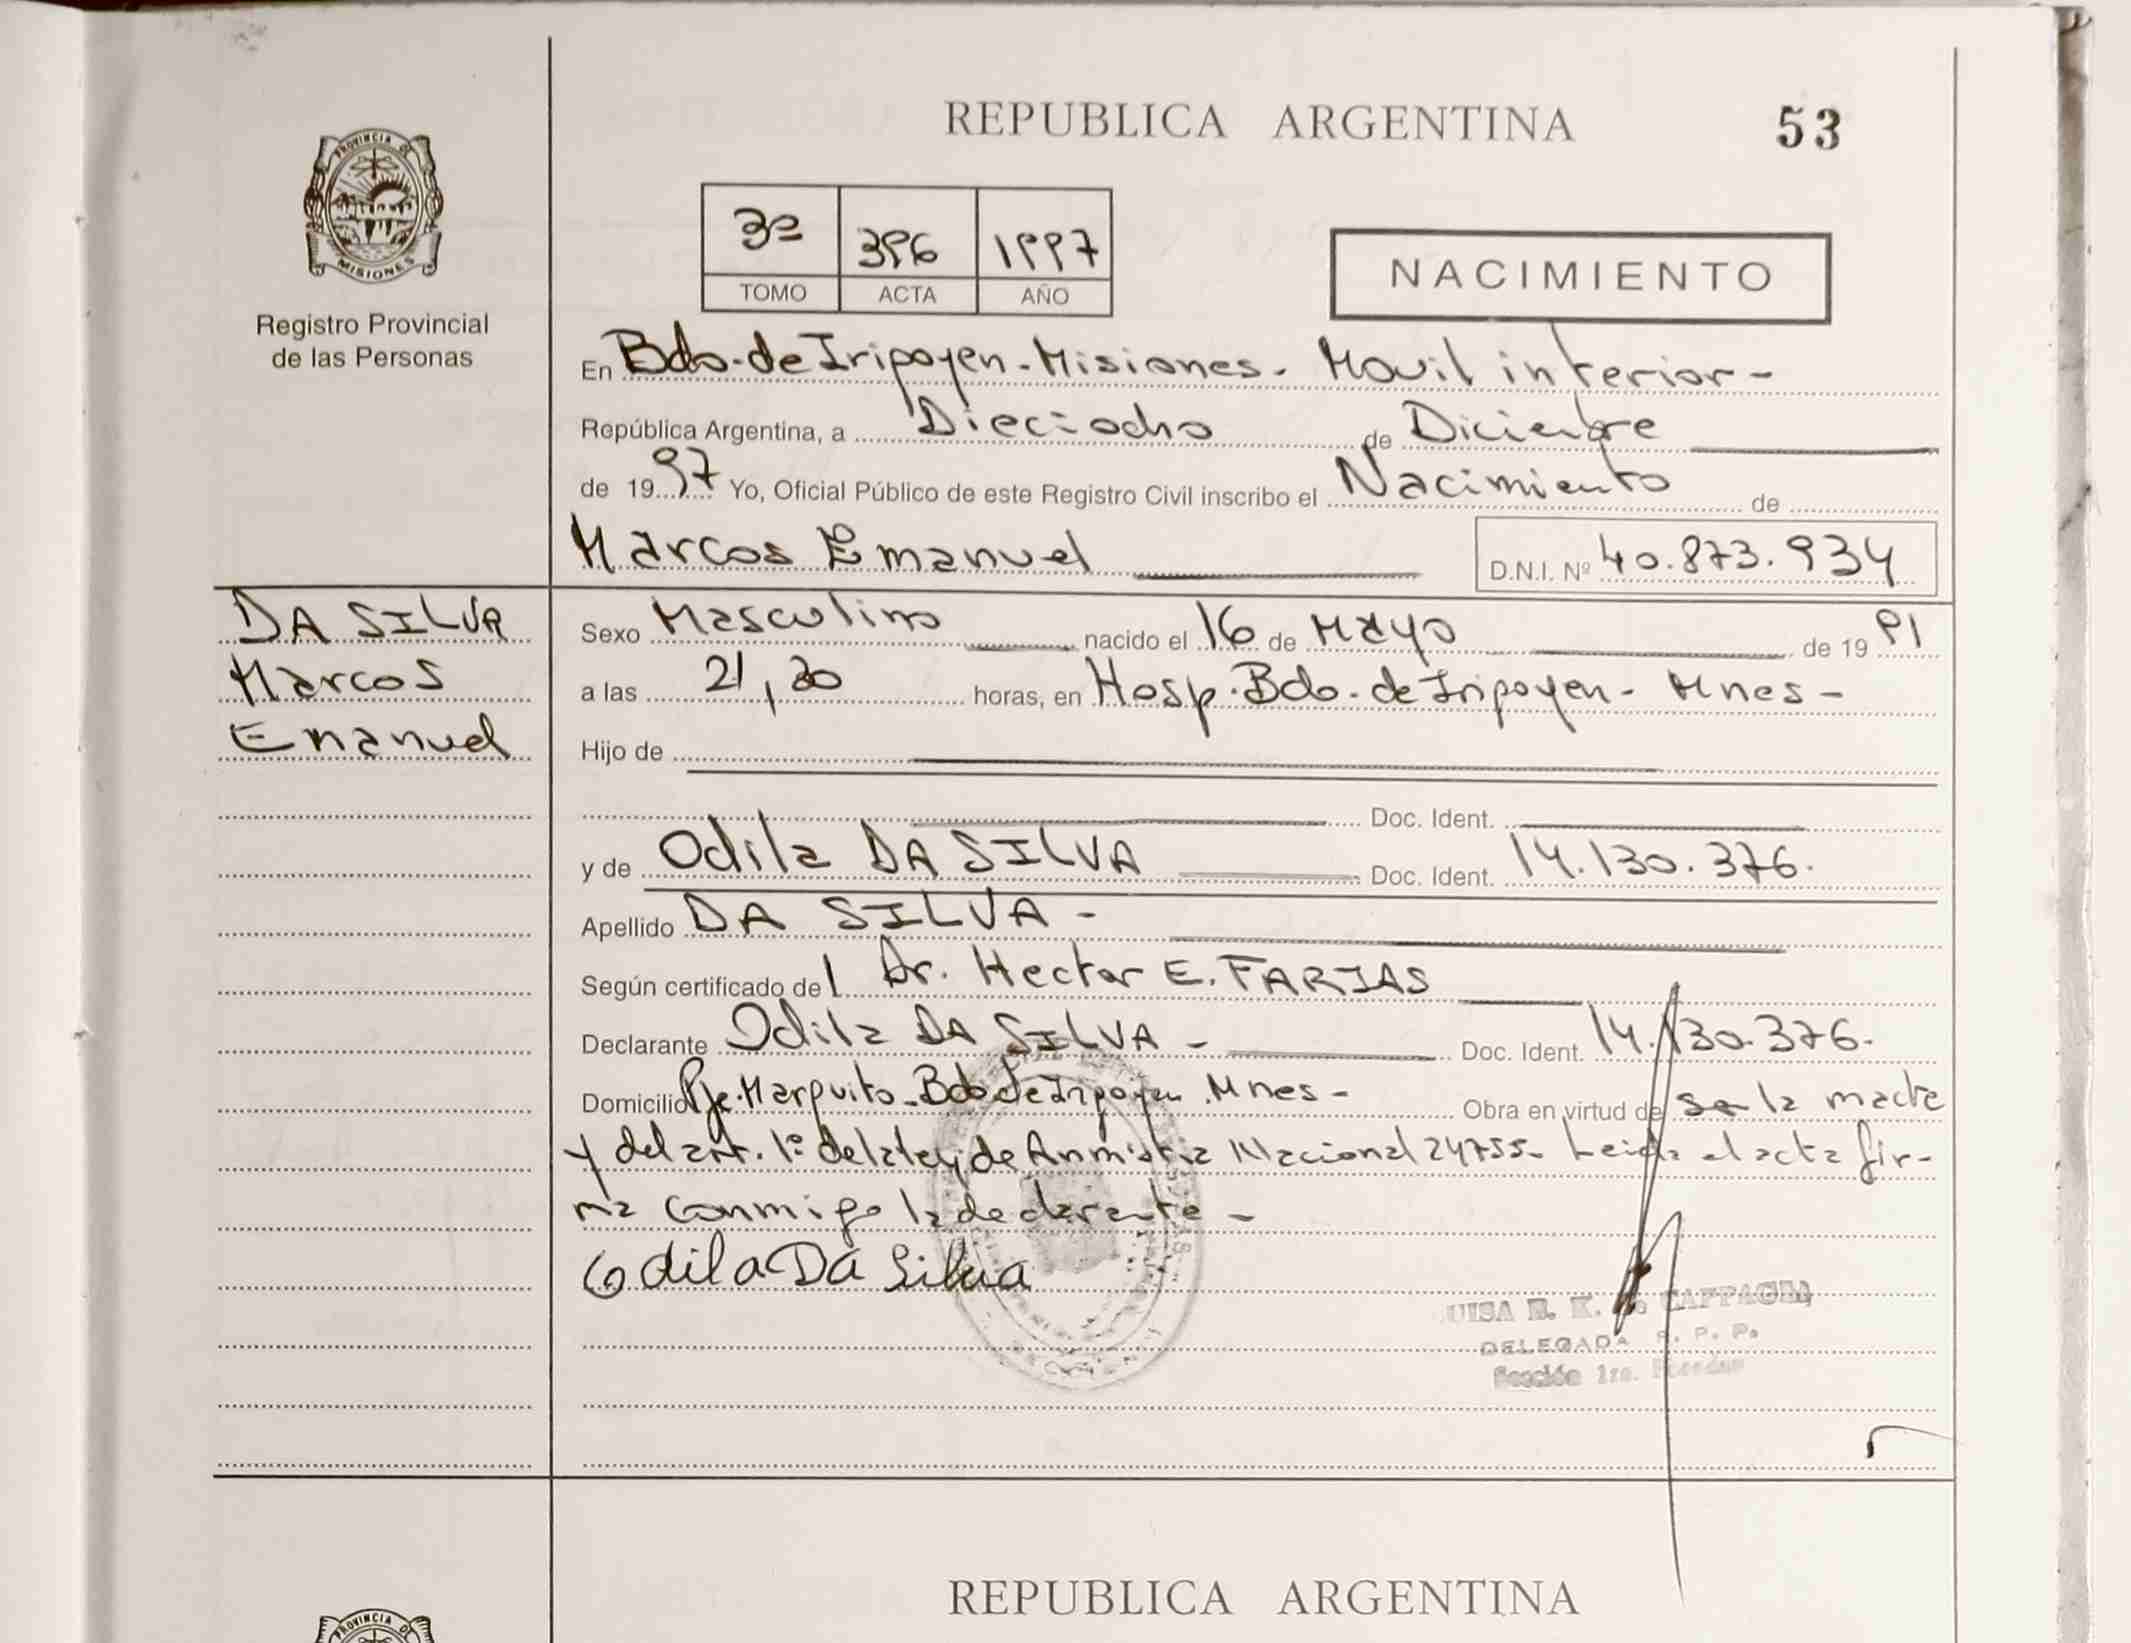 REPUBLICA ARGENTINA
53
PROVINCIA DE
MISIONES
Registro Provincial
de las Personas
3º 396 1997
TOMO ACTA AÑO
NACIMIENTO
En Bdo. de Iripoyen - Misiones - Movil interior -
República Argentina, a Dieciocho de Diciembre
de 1997 Yo, Oficial Público de este Registro Civil inscribo el Nacimiento de
Marcos Emanuel D.N.I. Nº 40.873.934
DA SILVA
Marcos
Emanuel
Sexo Masculino nacido el 16 de Mayo de 1991
a las 21,30 horas, en Hosp. Bdo. de Iripoyen - Mnes -
Hijo de
Doc. Ident.
y de Odila DA SILVA Doc. Ident. 14.130.376.
Apellido DA SILVA -
Según certificado del Dr. Hector E. FARIAS
Declarante Odila DA SILVA - Doc. Ident. 14.130.376.
Domicilio Pje. Marquito - Bdo de Iripoyen . Mnes - Obra en virtud de se la madre
y del art. 1º de la ley de Anmistia Nacional 24755 - Leida el acta fir-
ma conmigo la declarante -
Odila Da Silva
DELEGADA R. P. P.
Sección 1ra.
REPUBLICA ARGENTINA
PROVINCIA